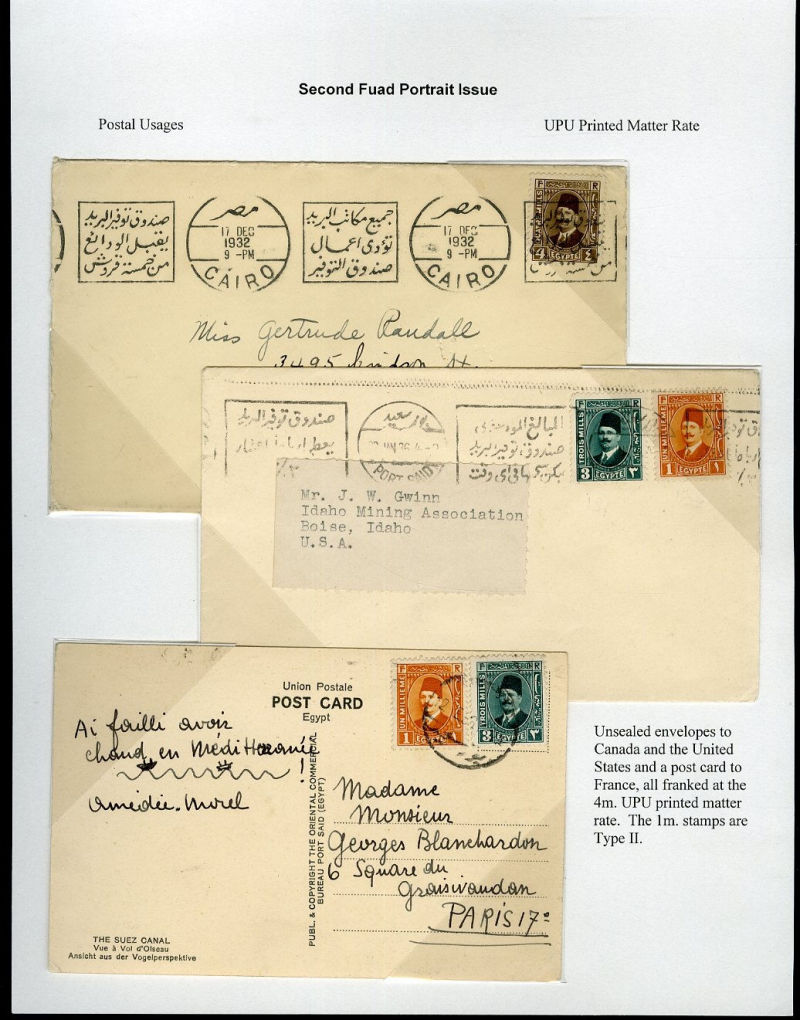 Second Fuad Portrait Issue
Postal Usages
UPU Printed Matter Rate
صندوق توفير البريد
يقبل الودائع
من خمسة قروش
مصر
17 DEC
1932
9 -PM
CAIRO
جميع مكاتب البريد
تؤدى اعمال
صندوق التوفير
مصر
17 DEC
1932
9 -PM
CAIRO
F R
4 ٤
EGYPTE
Miss Gertrude Randall
3495
صندوق توفير البريد
بورسعيد
PORT SAID
المبالغ المودعة فى
صندوق توفير البريد
يمكن سحبها فى اى وقت
F R
TROIS MILLS
3 ٣
EGYPTE
F R
UN MILLIEME
1 ١
EGYPTE
Mr. J. W. Gwinn
Idaho Mining Association
Boise, Idaho
U.S.A.
Union Postale
POST CARD
Egypt
F R
UN MILLIEME
1 ١
EGYPTE
F R
TROIS MILLS
3 ٣
EGYPTE
Ai failli avoir
chaud en Méditerranée!
Amédée Morel
PUBL. & COPYRIGHT THE ORIENTAL COMMERCIAL
BUREAU PORT SAID (EGYPT)
Madame
Monsieur
Georges Blanchardon
6 Square du
Graisivaudan
PARIS 17e
THE SUEZ CANAL
Vue à Vol d'Oiseau
Ansicht aus der Vogelperspektive
Unsealed envelopes to
Canada and the United
States and a post card to
France, all franked at the
4m. UPU printed matter
rate. The 1m. stamps are
Type II.